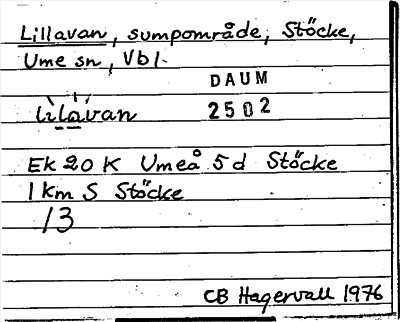 Lillavan, sumpområde, Stöcke,
Ume sn, Vbl.
DAUM
lìlávan 2502
Ek 20 K Umeå 5 d Stöcke
1 km S Stöcke
13
CB Hagervall 1976